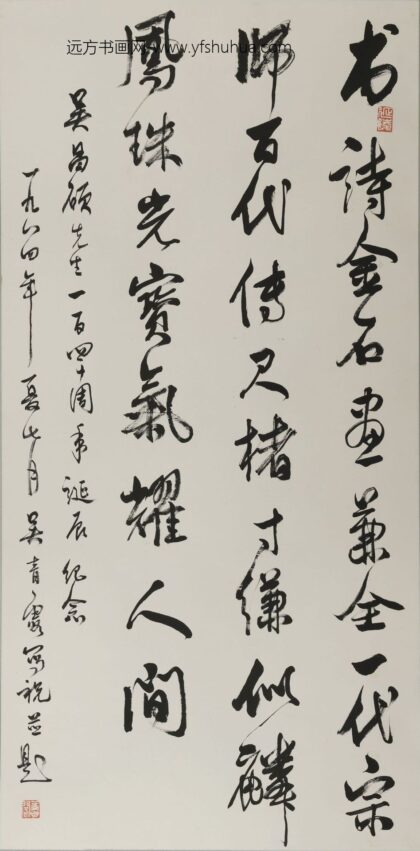 远方书画网 www.yfshuhua.com
书詩金石畫兼全一代宗
師百代傳尺楮寸縑似麟
鳳珠光寶氣耀人間
吴昌碩先生一百四十周年誕辰纪念
一九八四年夏七月吴青霞写祝并题